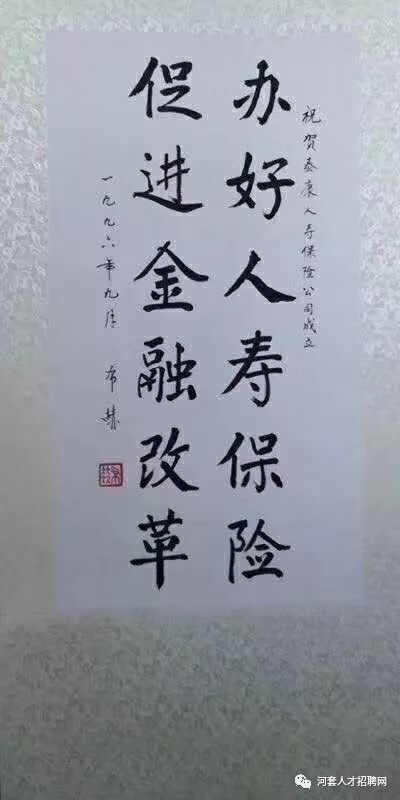 祝贺泰康人寿保险公司成立
办好人寿保险
促进金融改革
一九九六年九月
布赫
河套人才招聘网